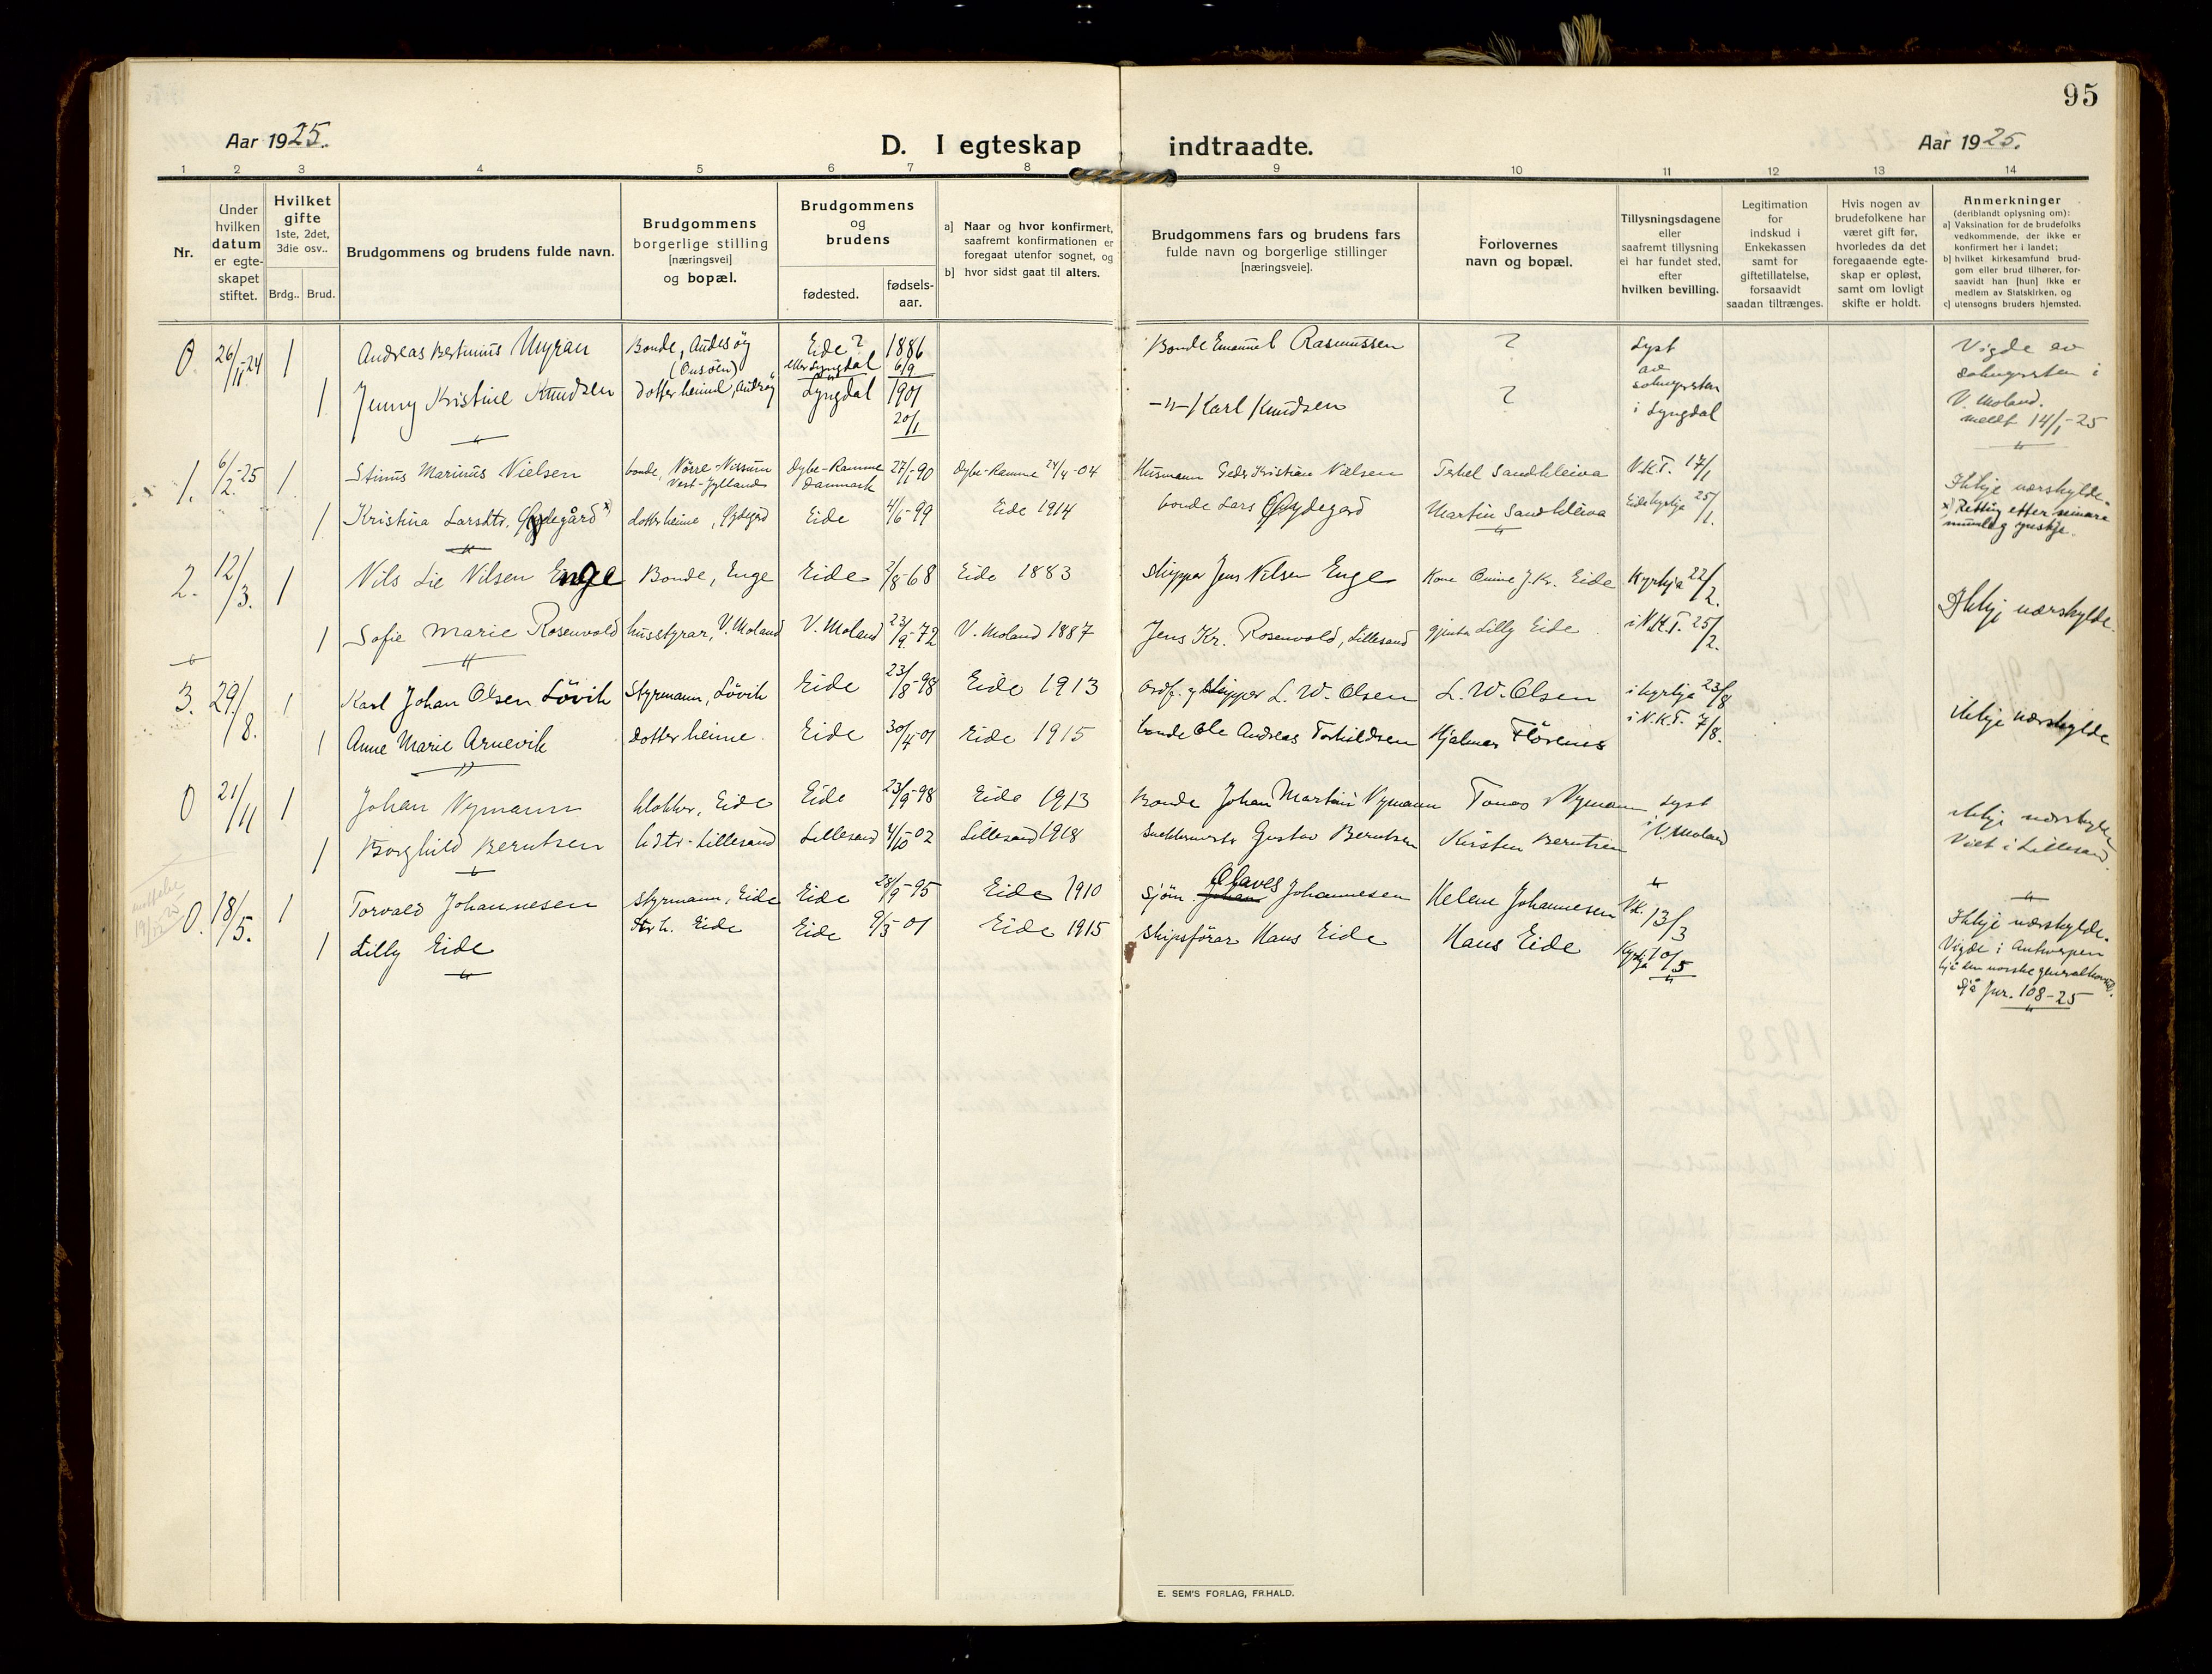 95
Aar 1925.
D. I egteskap indtraadte.
Aar 1925.
1 2 3 4 5 6 7 8 9 10 11 12 13 14
Nr.
Under hvilken datum er egteskapet stiftet.
Hvilket gifte 1ste, 2det, 3die osv..
Brdg.. Brud.
Brudgommens og brudens fulde navn.
Brudgommens borgerlige stilling [næringsvei] og bopæl.
Brudgommens og brudens
fødested.
fødselsaar.
a) Naar og hvor konfirmert, saafremt konfirmationen er foregaat utenfor sognet, og
b) hvor sidst gaat til alters.
Brudgommens fars og brudens fars fulde navn og borgerlige stillinger [næringsveie].
Forlovernes navn og bopæl.
Tillysningsdagene eller saafremt tillysning ei har fundet sted, efter hvilken bevilling.
Legitimation for indskud i Enkekassen samt for giftetillatelse, forsaavidt saadan tiltrænges.
Hvis nogen av brudefolkene har været gift før, hvorledes da det foregaaende egteskap er opløst, samt om lovligt skifte er holdt.
Anmerkninger (deriblandt oplysning om):
a) Vaksination for de brudefolks vedkommende, der ikke er konfirmert her i landet;
b) hvilket kirkesamfund brudgom eller brud tilhører, forsaavidt han [hun] ikke er medlem av Statskirken, og
c) utensogns bruders hjemsted.
0. 26/11-24 1 Andreas Bertinius Myran Bonde, Andesöy (Onsöen) Eide? eller Lyngdal 1886 6/9 Bonde Emanuel Rasmussen ? Lyst av soknepresten i Lyngdal Vigde av soknepresten i V. Moland. meldt 14/1-25
1 Jenny Kristine Knudsen dotter heime, Lyngdal 1901 20/1 -"- Karl Knudsen ?
1. 6/2-25 1 Stinus Marinus Nielsen bonde, Nörre-Nissum Vest-Jylland Dybe-Ramme Danmark 27/1-90 Dybe-Ramme 24/4-04 Husmann Peder Kristian Nielsen Terkel Sandkleiva N.K.T. 17/1 Ikkje nærskylde.
1 Kristina Larsdtr. Öydegård x dotter heime, Öydegard Eide 4/6-99 Eide 1914 bonde Lars Öydegard Martin Sandkleiva Eidekyrkja 25/1. x) Retting etter seinare munleg ynskje.
2. 12/3. 1 Nils Lie Nilsen Enge Bonde, Enge Eide 2/8-68 Eide 1883 Skipper Jens Nilsen Enge Kona J. Kr. Eide Kyrkja 22/2. Ikkje nærskylde.
1 Sofie Marie Rosenvold husstyrar, V. Moland V. Moland 23/9-72 V. Moland 1887 Jens Kr. Rosenvold, Lillesand gjenta Lilly Eide i N.K.T. 25/2.
3. 29/8. 1 Karl Johan Olsen Lövik Styrmann, Lövik Eide 23/8-98 Eide 1913 Ordf. og Skipper L. W. Olsen L. W. Olsen i kyrkja 23/8 ikkje nærskylde
1 Anne Marie Arnevik dotter heime. Eide 30/4-01 Eide 1915 bonde Ole Andreas Torkildsen Hjalmar Flörenes i N.K.T. 7/8.
0 21/11 1 Johan Nymann klokker, Eide Eide 23/9-98 Eide 1913 Bonde Johan Martin Nymann Tomas Nymann Lyst i V. Moland ikkje nærskylde Viet i Lillesand
1 Borghild Berntsen Lillesand Lillesand 4/10-02 Lillesand 1918 Gustav Berntsen Kirsten Berntsen
meldte 19/-25
0. 18/5. 1 Torvald Johannesen styrmann, Eide Eide 28/9-95 Eide 1910 Sjöm. Johan Olaves Johannesen Helene Johannesen 13/3 Ikkje nærskylde.
1 Lilly Eide h. Eide Eide 9/3-01 Eide 1915 skipsförar Hans Eide Hans Eide Kyrkja 10/5 Vigde i Antwerpen hjå den norske generalkonsul. Sjå Jnr. 108-25
E. SEM'S FORLAG, FR.HALD.